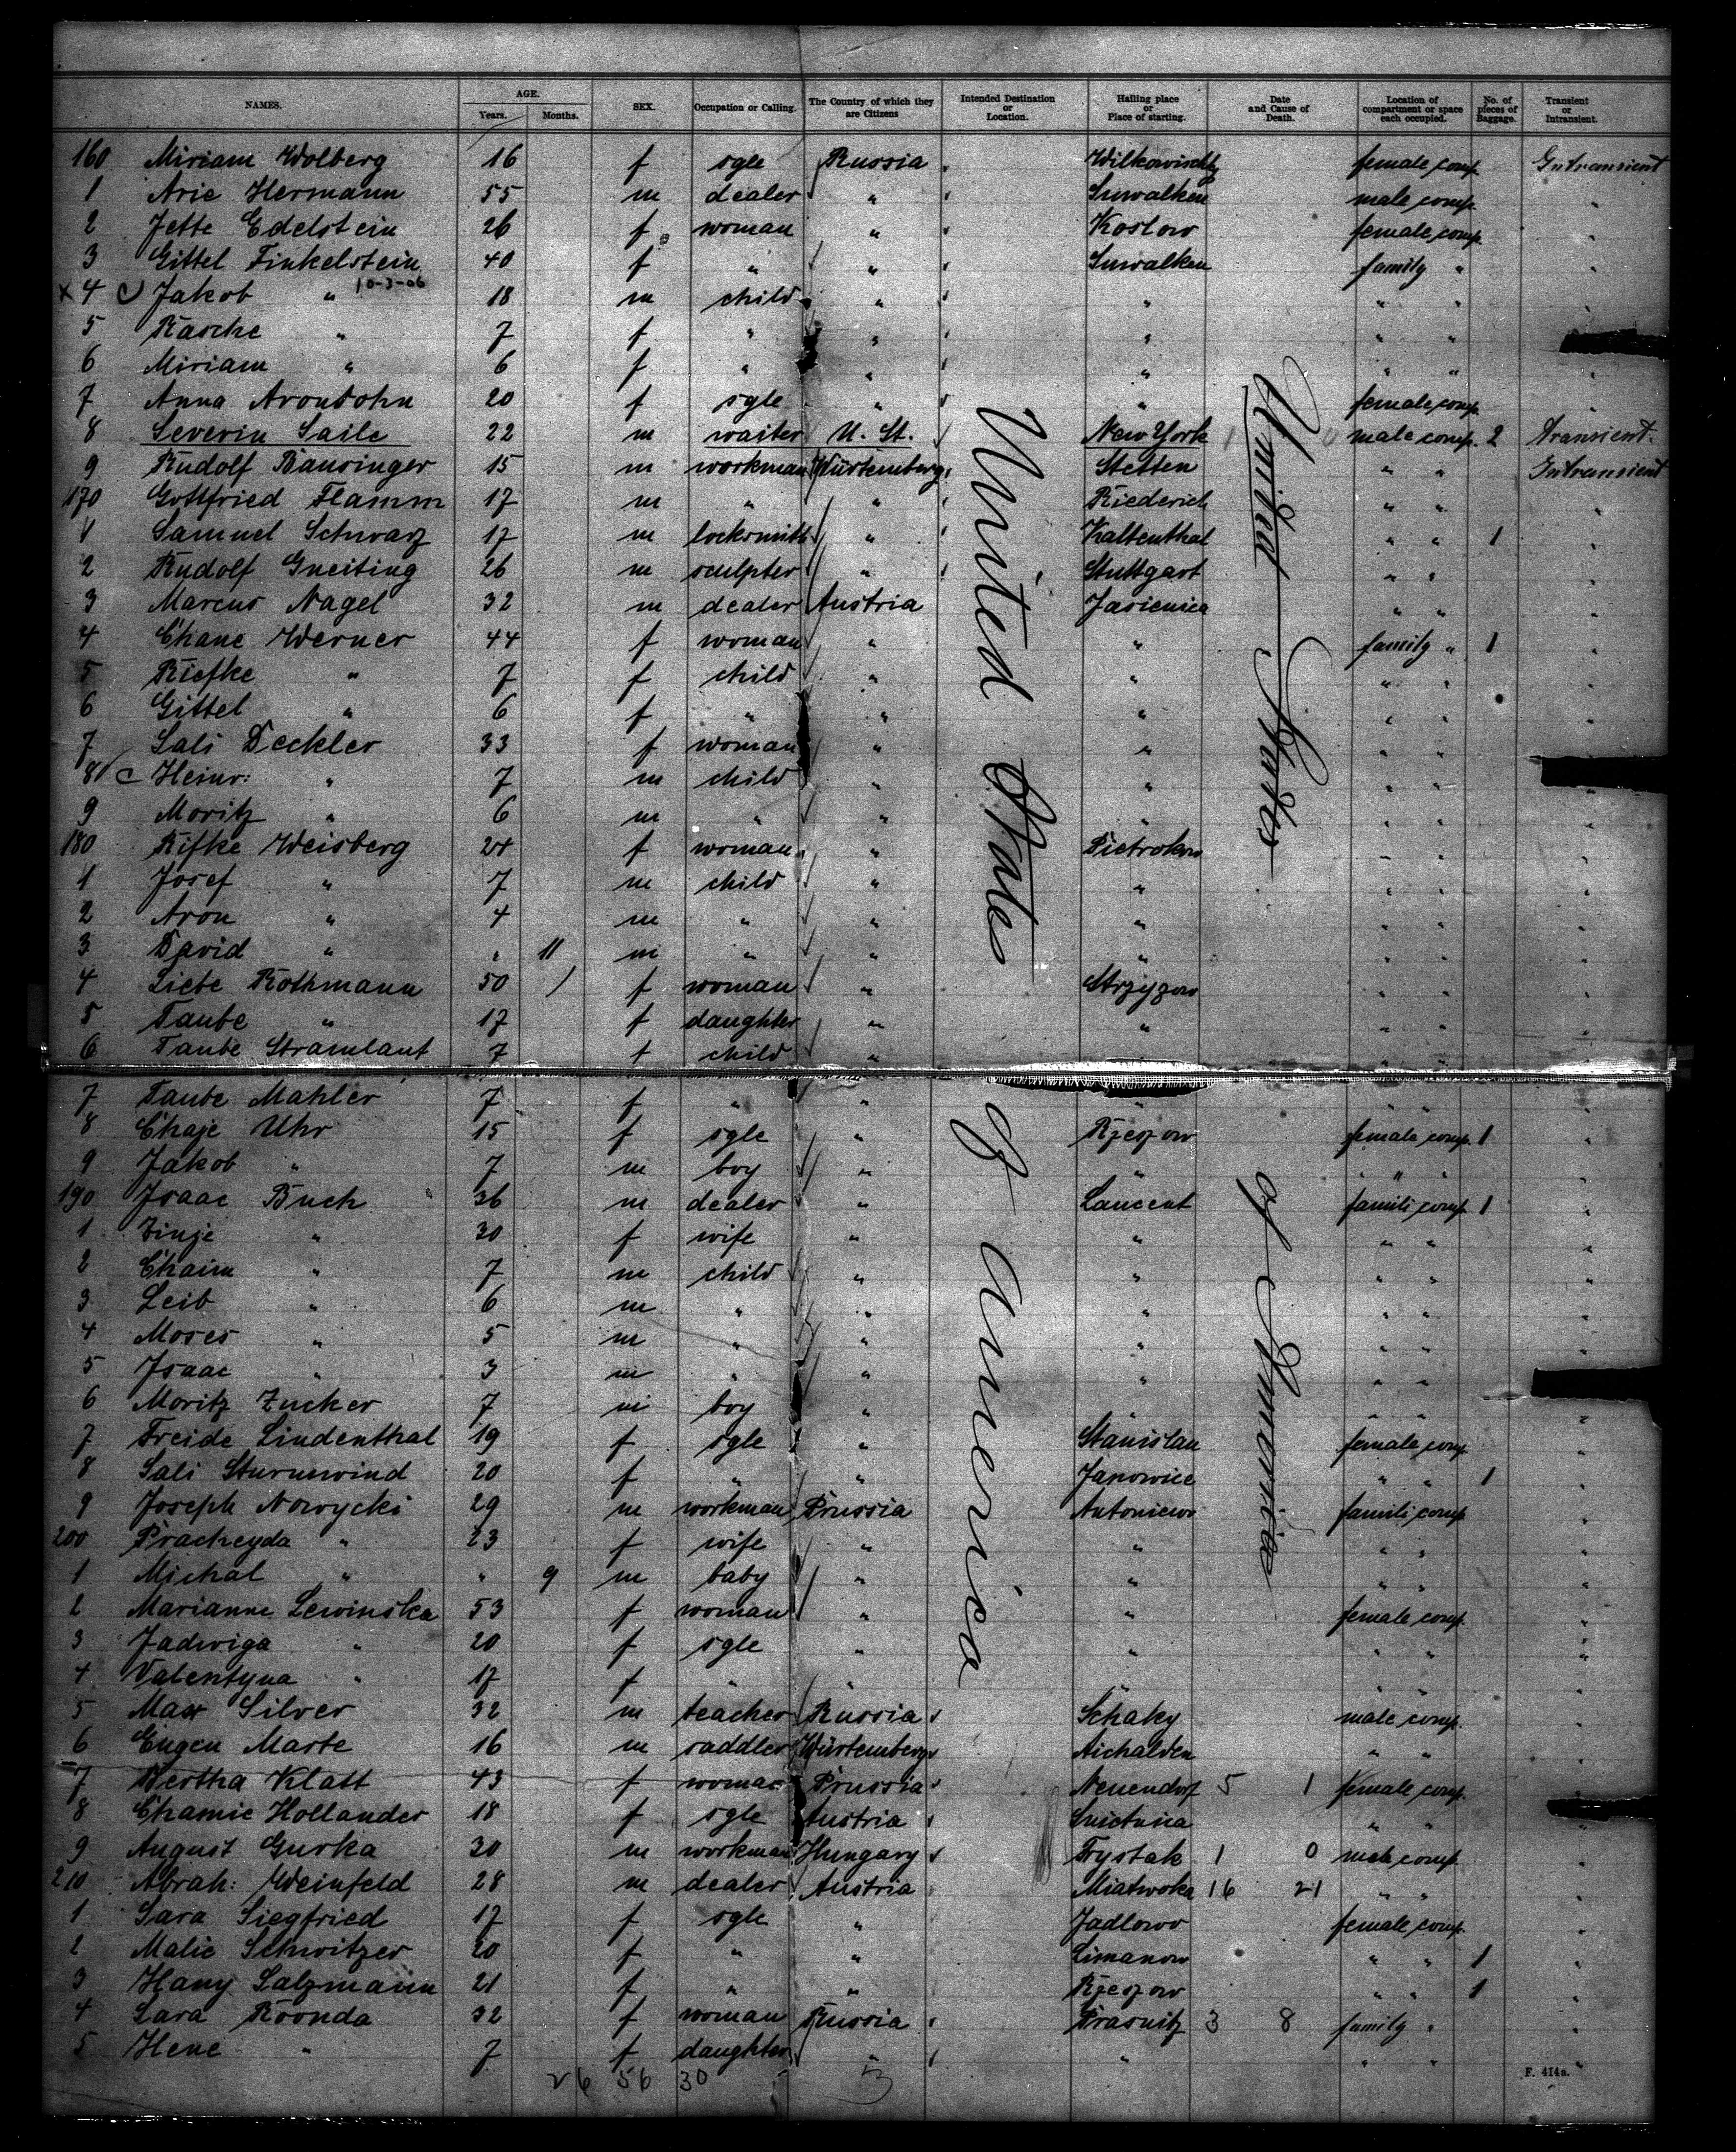 NAMES. AGE. Years. Months. SEX. Occupation or Calling. The Country of which they are Citizens Intended Destination or Location. Hailing place or Place of starting. Date and Cause of Death. Location of compartment or space each occupied. No. of pieces of Baggage. Transient or Intransient.
160 Miriam Wolberg 16 f sgle Russia Wilkowischky female comp. Intransient
1 Arie Hermann 55 m dealer " Suwalken male comp. "
2 Jette Edelstein 26 f woman " Koslow female comp. "
3 Gittel Finkelstein 40 f " " Suwalken family " "
10-3-06
x 4 c Jakob " 18 m child " " " " "
5 Rasche " 7 f " " " " "
6 Miriam " 6 f " " " " " "
7 Anna Aronsohn 20 f sgle " " female comp. "
8 Severin Saile 22 m waiter U. St. New York 1 0 male comp. 2 Transient.
9 Rudolf Bausinger 15 m workman Würtemberg Stetten " " Intransient
170 Gottfried Flamm 17 m " " Riederich " " "
1 Samuel Schwarz 17 m locksmith " Kaltenthal " " 1 "
2 Rudolf Gneiting 26 m sculpter " Stuttgart " " "
3 Marcus Nagel 32 m dealer Austria Jasienica " " "
4 Chane Werner 44 f woman " " family " 1 "
5 Riefke " 7 f child " " " " "
6 Gittel " 6 f " " " " " "
7 Sali Deckler 33 f woman " " " " "
8 c Heinr: " 7 m child " " " " "
9 Moritz " 6 m " " " " " "
180 Rifke Weisberg 24 f woman " Pietrokow " " "
1 Josef " 7 m child " " " " "
2 Aron " 4 m " " " " " "
3 David " " 11 m " " " " " "
4 Liebe Rothmann 50 f woman " Strzyzow " " "
5 Taube " 17 f daughter " " " " "
6 Taube Stramlauf 7 f child " " "
7 Taube Mahler 7 f " " " " "
8 Chaje Uhr 15 f sgle " Rzeszow female comp. 1 "
9 Jakob " 7 m boy " " " " "
190 Isaac Buch 36 m dealer " Lancent famili comp. 1 "
1 Zinje " 30 f wife " " " " "
2 Chaim " 7 m child " " " " "
3 Leib " 6 m " " " " " "
4 Moses " 5 m " " " " " "
5 Isaac " 3 m " " " " "
6 Moritz Zucker 7 m boy " " " " "
7 Freide Lindenthal 19 f sgle " Stanislau female comp. "
8 Sali Sturmwind 20 f " " Janowice " " 1 "
9 Joseph Nowycki 29 m workman Prussia Antoniewo famili comp. "
200 Pracheyda " 23 f wife " " " " "
1 Michal " " 9 m baby " " " " "
2 Marianne Lewinska 53 f woman " " female comp. "
3 Jadwiga " 20 f sgle " " " " "
4 Valentyna " 17 f " " " " " "
5 Max Silver 32 m teacher Russia Schaky male comp. "
6 Eugen Marte 16 m saddler Würtemberg Aichalden " " "
7 Bertha Klatt 43 f woman Prussia Neuendorf 5 1 female comp. "
8 Chamie Hollander 18 f sgle Austria " " "
9 August Gurka 30 m workman Hungary Frystak 1 0 male comp. "
210 Abrah: Weinfeld 28 m dealer Austria 16 21 " " "
1 Sara Siegfried 17 f sgle " Jadlowo female comp. "
2 Malie Schwitzer 20 f " " Limanow " " 1 "
3 Hany Salzmann 21 f " " Rzeszow " " 1 "
4 Sara Roonda 32 f woman Russia Prasnitz 3 8 family " "
5 Hene " 7 f daughter " " " " "
26 56 30
F. 414a.
United States of America
United States of America